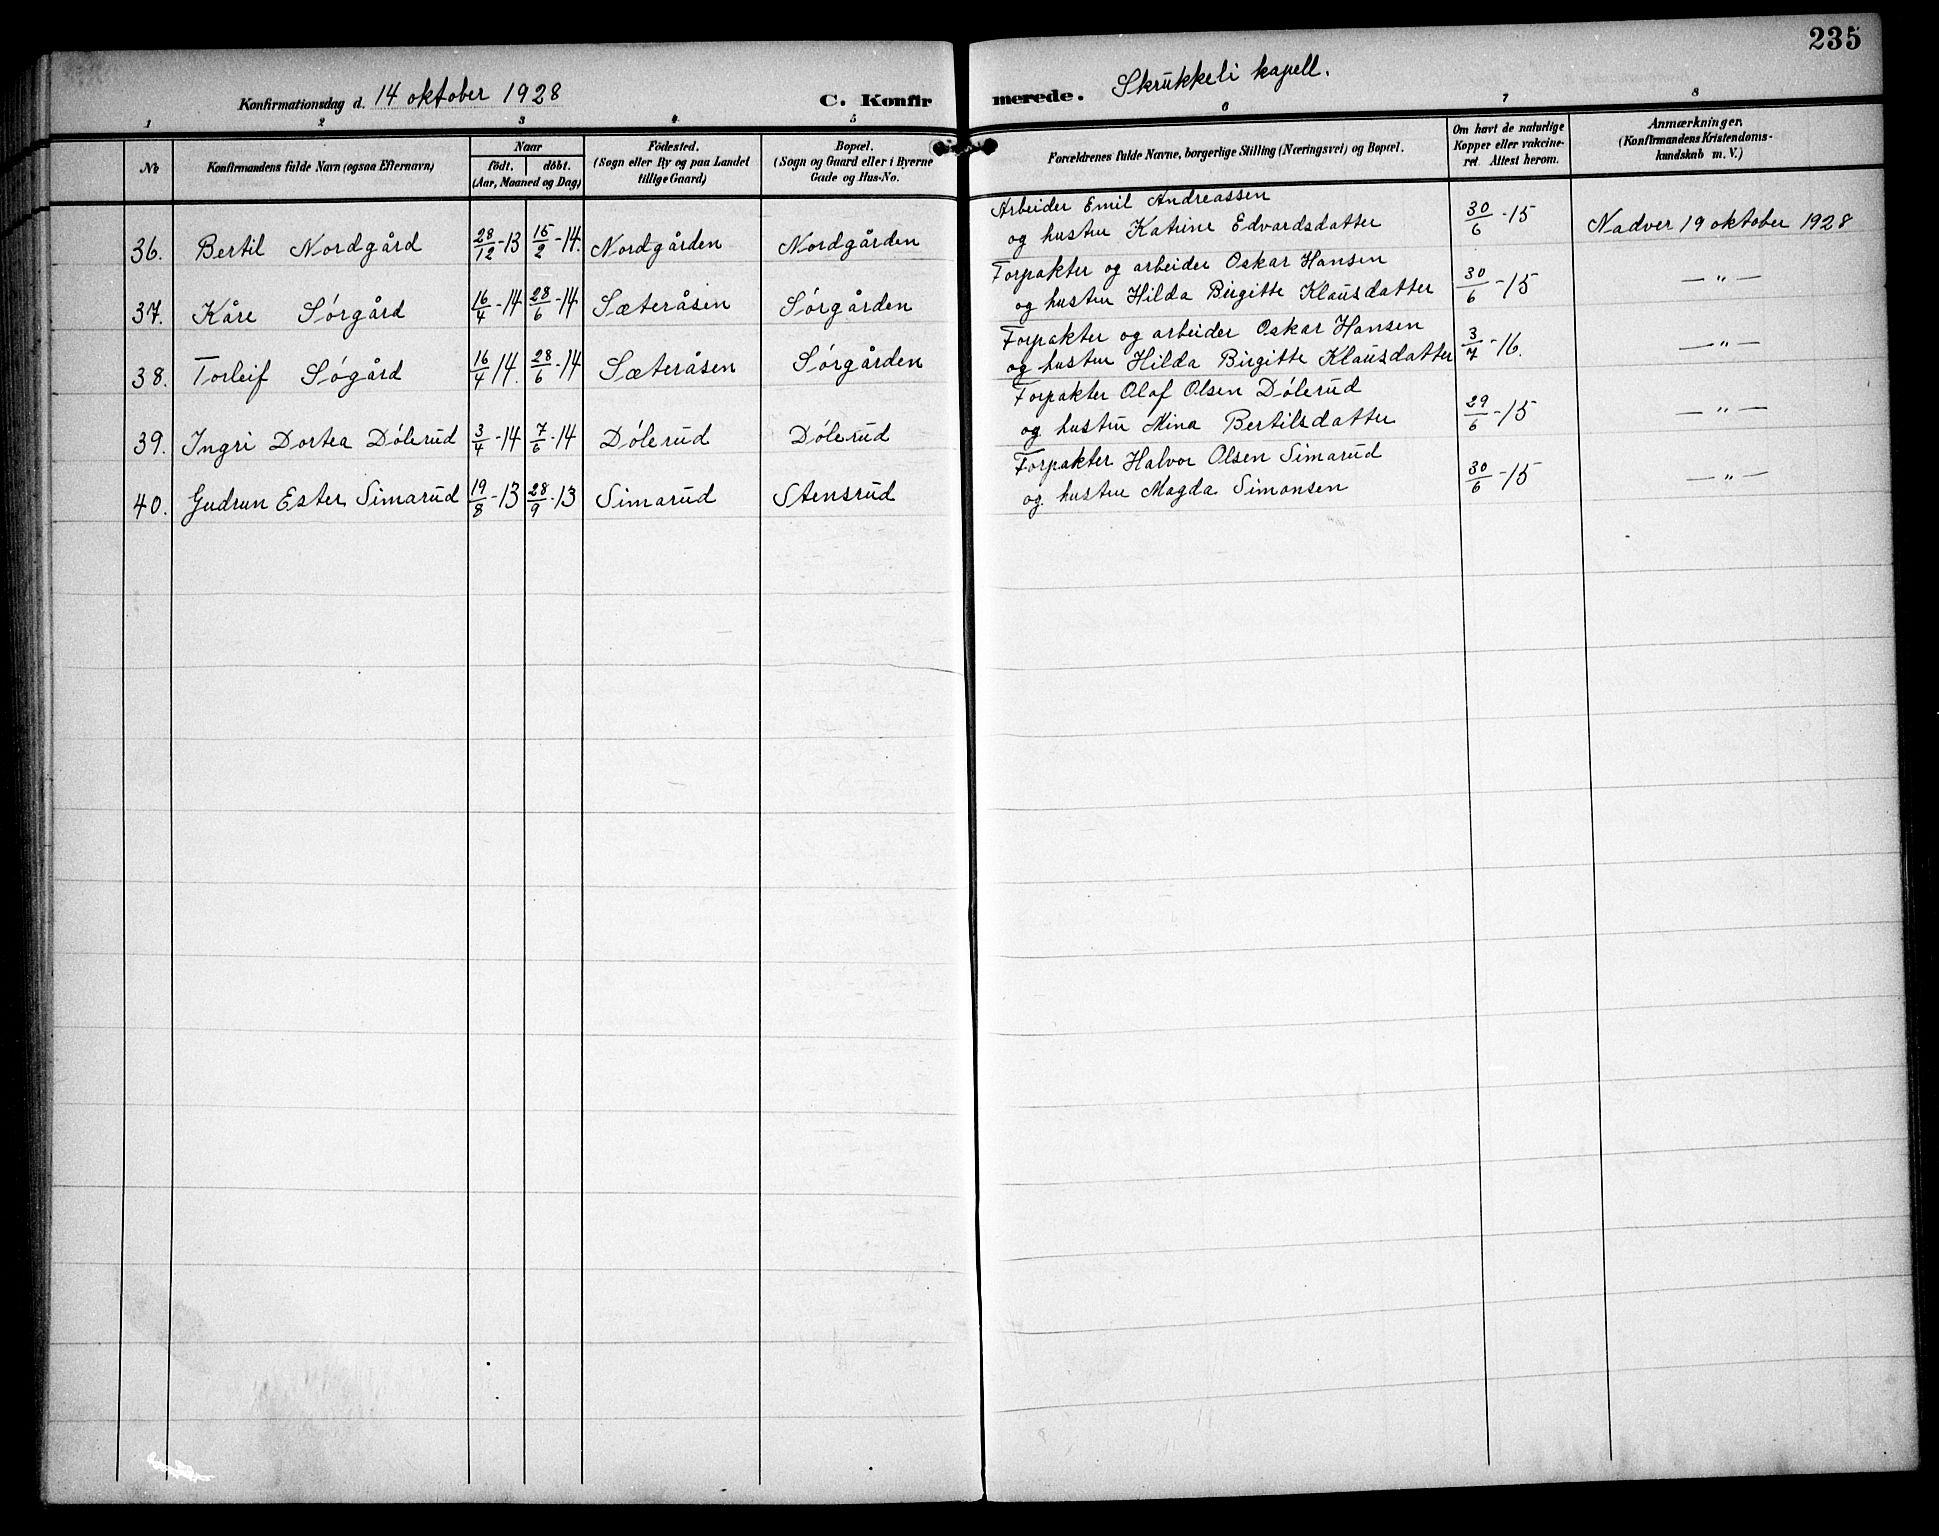 235
Konfirmationsdag d. 14 oktober 1928 C. Konfirmerede. Skrukkeli kapell.
1 2 3 4 5 6 7 8
No Konfirmandens fulde Navn (ogsaa Efternavn)
Naar
født. døbt.
(Aar, Maaned og Dag)
Födested.
(Sogn eller By og paa Landet
tillige Gaard)
Bopæl.
(Sogn og Gaard eller i Byerne
Gade og Hus-No.
Forældrenes fulde Navne, borgerlige Stilling (Næringsvei) og Bopæl.
Om havt de naturlige
Kopper eller vakcine-
ret. Attest herom.
Anmærkninger.
(Konfirmandens Kristendoms-
kundskab m. V.)
Arbeider Emil Andreassen
36. Bertil Nordgård 28/12-13 15/2-14. Nordgården Nordgården og hustru Katrine Edvardsdatter 30/6-15 Nadver 19 oktober 1928
Forpakter og arbeider Oskar Hansen
37. Kåre Sørgård 16/4-14 28/6-14 Sæteråsen Sørgården og hustru Hilda Birgitte Klausdatter 30/6-15 — " —
Forpakter og arbeider Oskar Hansen
38. Torleif Søgård 16/4 14. 28/6-14 Sæteråsen Sørgården og hustru Hilda Birgitte Klausdatter 3/7-16. — " —
Forpakter Olaf Olsen Dølerud
39. Ingri Dortea Dølerud 3/4-14 7/6-14 Dølerud Dølerud og hustru Mina Bertilsdatter 29/6-15 — " —
Forpakter Halvor Olsen Simarud
40. Gudrun Ester Simarud 19/8-13 28/9-13 Simarud Stensrud og hustru Magda Simonsen 30/6-15 — " —